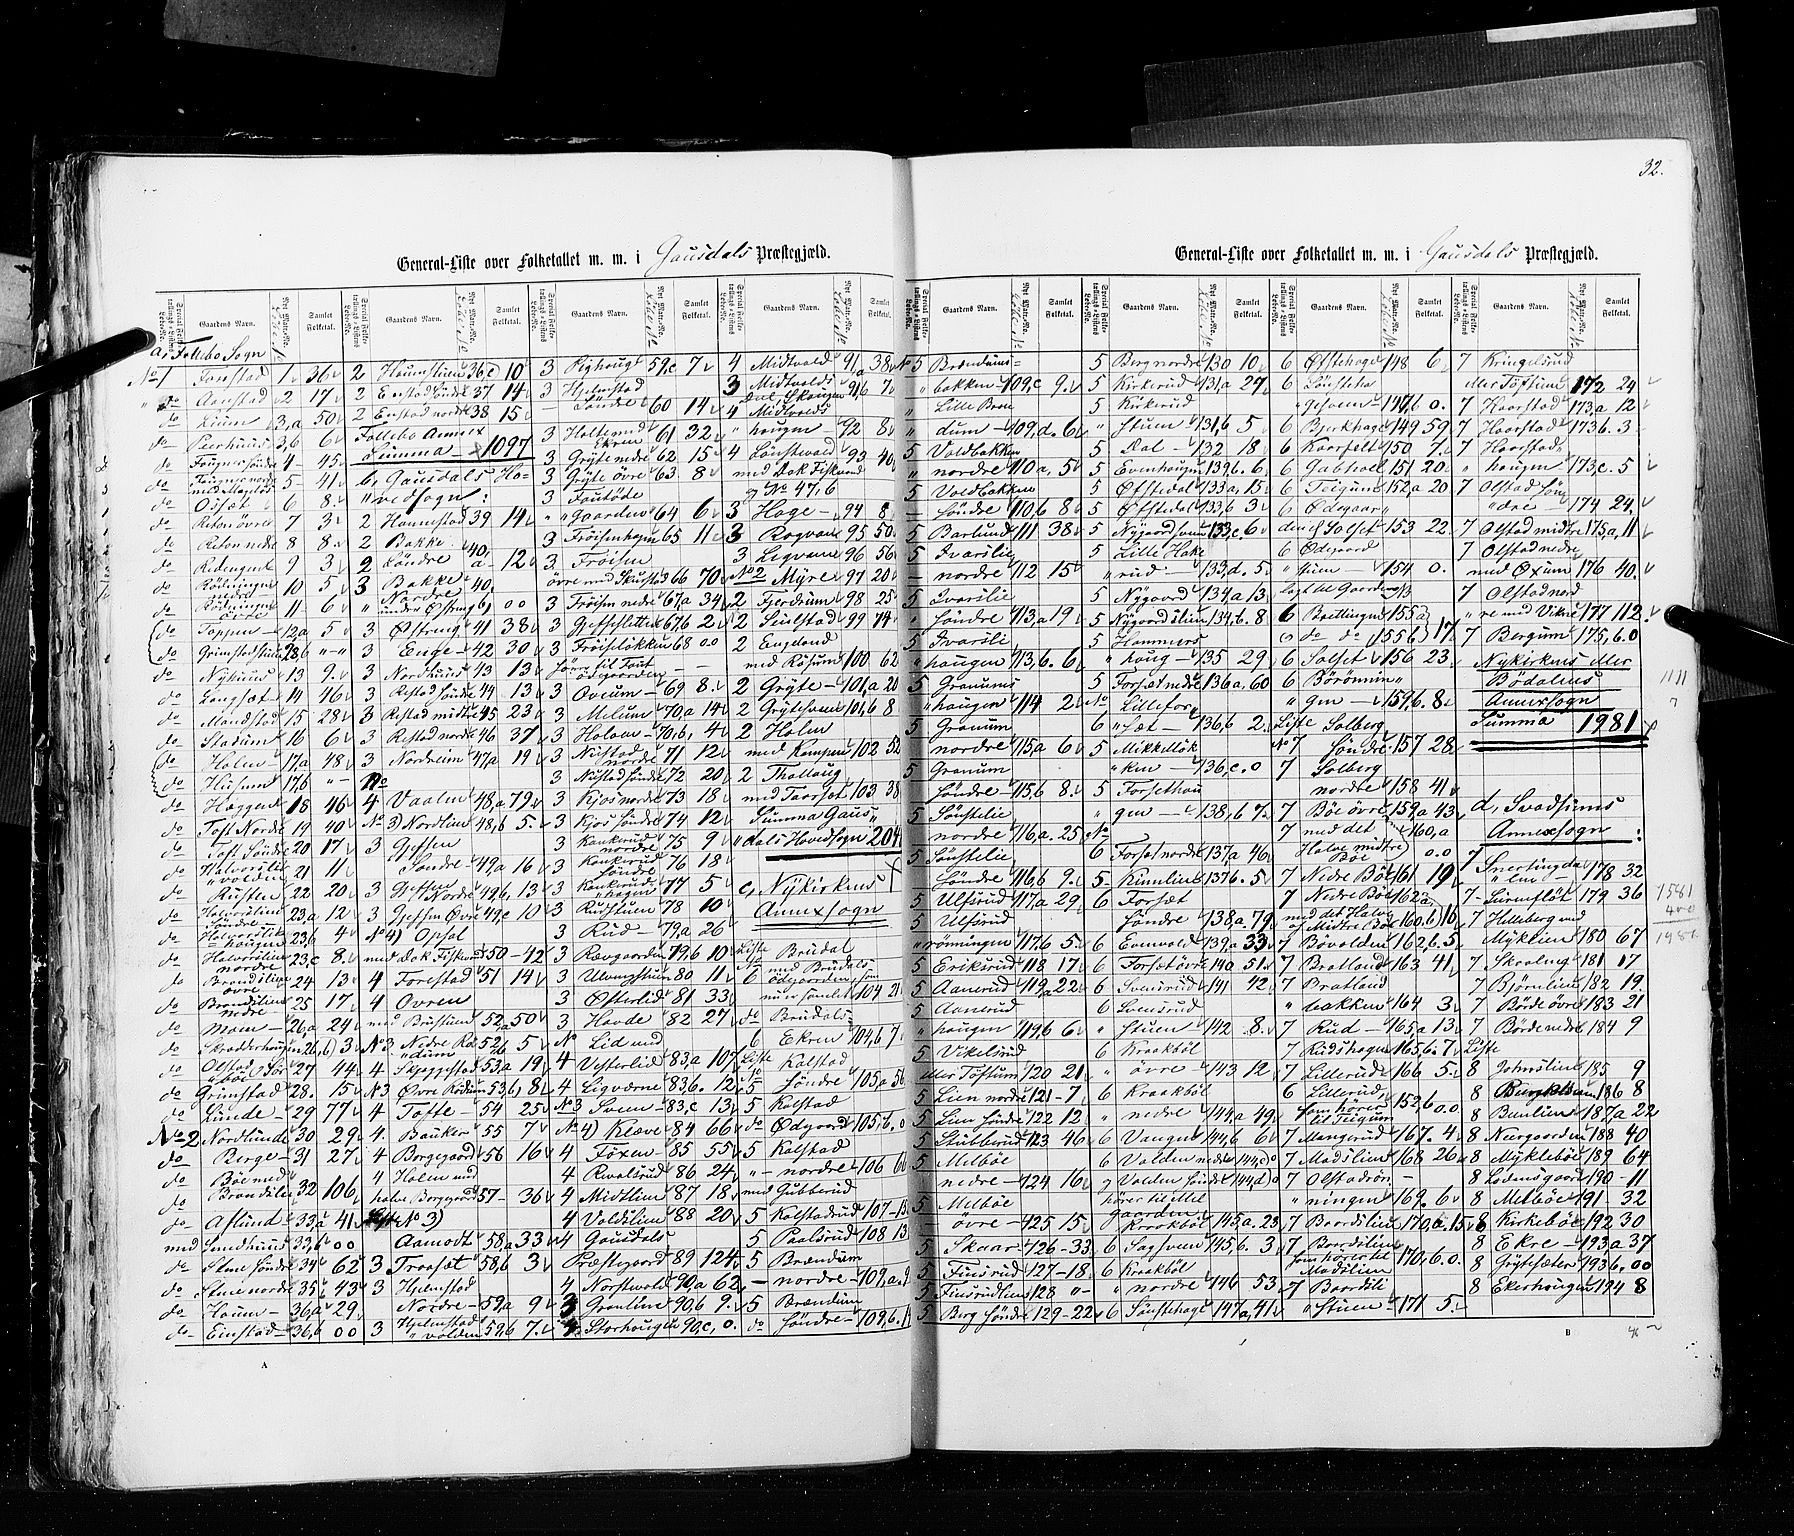 32.
General-Liste over Folketallet m. m. i Gausdals Præstegjæld.
Gaardens Navn. Samlet Folketal.
a, Follebo Sogn
No 1 Forestad 1 36
do Aanstad 2 17
do Liium 3,a 50
do Peerhuus 3,b 6
do Fougner søndre 4 45
do Fougner nordre med Magelos 5 41
do Oisæt 6 8
do Reton øvre 7 3
do Reton nedre 8 8
do Ridengene 9 3
do Rødningen nedre 10 5
do Rødningen øvre 11 6
do Toppen 12a 5
do Grimstadstuen 12b
do Nyhuus 13 9
do Langsæt 14 46
do Mandstad 15 28
do Stadum 16 6
do Holen 17,a 48
do Huusum 17,b
do Haggen 18 46
do Toft Nordre 19 40
do Toft Søndre 20 17
do Halvorslie volden 21 11
do Rusten 22 20
do Halvorslien søndre 23,a 12
do Halvorslie haugen 23,b 4
do Halvorslien nordre 23,c 8
do Brandslien øvre 24 13
do Brandslien nedre 25 17
do Moen 26,a 24
do Skrædderhaugen 26,b 3
do Olstad 27 44
do Grimstad 28 15
do Linde 29 77
No 2 Nordlinde 30 29
do Berge 31 27
do Bøe med Brandslie 32 106
do Aslund 33,a 41
med Smedhuus 33,b 00
do Stene Søndre 34 62
do Stene nordre 35 43
do Houm 36,a 29
do Einstad 36,b 00
2 Houmstuen 36,c 10
2 Enstad søndre 37 14
2 Enstad nordre 38 15
Follebo Annex
Summa 1097
b, Gausdals Hovedsogn:
2 Hannestad 39 14
2 Bakke Søndre 40,a 12
3 Bakke Nordre 40,
under Østeng b, 00
3 Østreng 41 38
3 Enge 42 30
3 Nordhuus 43 13
3 Restad Søndre 44 13
3 Restad midtre 45 23
3 Restad nordre 46 37
3 Nordheim 47,a 19
No
4 Vaalen 48,a 79
No 3 Nordlien 48,b 5
3 Geffen Søndre 49,a 16
3 Geffen Nordre 49,b 13
3 Geffen Øvre 49,c 10
No 4) Opsal
med Dok Fiskvand 50 42
4 Forestad 51 14
4 Ovren
med Brustuen 52,a 50
No 3 Nedre Rødum 52,b 5
4 Skjeggestad 53,a 19
No 3 Øvre Rødum 53,b 8
4 Tofte 54 25
4 Bauker 55 7
4 Borgegaard 56 16
4 Holen med
halve Borgegaard 57 36
Liste No 3)
Aamodt 58,a 33
3 Traaset 58,b 3
3 Hjelmstad Nordre 59,a 9
3 Hjelmstad volden 59,b 7
3 Righoug 59,c 7
3 Hjelmstad Søndre 60 14
3 Holte med Ekren 61 32
3 Gryte nedre 62 15
3 Gryte øvre 63 8
3 Foutøde Gaarden 64 6
3 Frøisenhagen 65 11
3 Frøisen
øvre med Skustad 66 70
3 Frøisen nedre 67,a 34
3 Geffsletten 67b 2
3 Frøisløkken 68 00
hører til Fout ødegaarden
3 Oveum 69 8
3 Melum 70,a 14
3 Holoen 70,b, 4
3 Nustad nordre 71 12
3 Nustad søndre 72 20
3 Kjos nordre 73 18
3 Kjos søndre 74 12
3 Kankerud nordre 75 9
3 Kankerud Søndre 76 18
3 Kankerud hagen 77 5
3 Ruustuen 78 10
3 Rud 79,a 26
3 Rævgaarden 79,b 10
3 Ulvingstuen 80 11
3 Østerlid 81 33
3 Hovde 82 27
No Lid med
4 Vesterlid 83,a 107
4 Ligværne 83b. 12
No 3 Sveen 83,c 13
No 4) Kleve 84 66
4 Foxen 85 55
4 Revalsrud 86 24
4 Midtlien 87 18
4 Voldslien 88 20
4 Gausdals
Præstegaard 89 124
4 Norstevold 90,a 62
3 Granlien 90,b 9
4 Storhougen 90,c, 0
4 Midtvold 91,a 38
3 Midtvolds dal, Skougen 91,b 7
4 Midtvolds
haugen 92 8
4 Lønstevold 93 40
med Dok Fiskvand
No 47,b
3 Hage 94 8
3 Rogvam 95 50
3 Ligvam 96 56
No 2 Myre 97 20
2 Fjerdrum 98 25
2 Smlstad 99 14
2 Engeland
med Risum 100 62
2 Gryte 101,a 20
2 Grytesveen 101,b 8
2 Holen
med Kampen 102 52
2 Thallaug
med Taarset 103 38
Summa Gaus
dals Hovedsogn 204
c, Nykirkens
Annexsogn
Liste Brudal
6 med Brudals Ødegaarden
104 21
do Brudals
6 Ekren 104,b 7
Liste Kalstad
5 Søndre 105,a 56
5 Kalstad
do Ødegaard 105,b. 0
5 Kalstad
nordre 106 60
med Gutterud
5 Kalstadrud 107 13
5 Paalsrud 108 13
5 Brændum
nordre 109,a
5 Brændum
do Søndre 109,b.
General-Liste over Folketallet m. m. i Gausdals Præstegjæld.
Gaardens Navn. Samlet Folketal.
No 5 Brændums
bakken 109,c 9
Lille Bræn
dum 109,d. 6
5 Voldbakken
nordre 110,a, 5
5 Voldbakken
søndre 110,b 8
5 Barlund 111 38
5 Ivarslie
nordre 112 15
5 Ivarslie
søndre 113,a 19
5 Ivarsli
haugen 113,b. 6
5 Granums
haugen 114 2
5 Granum
nordre 115,a 6
5 Granum
Søndre 115,b 8
5 Sønstelie
nordre 116,a. 25
5 Sønstelie
Søndre 116,b 9
5 Ulfsrud 117,a 29
5 Ulfsrud
rønningen 117,b 5
5 Eriksrud 118 17
5 Aanerud 119,a 22
5 Aanerud
haugen 119,b 6
5 Vikelsrud
eller Toftum 120 21
5 Lien nordre 121 7
5 Lien søndre 122 12
5 Stubberud 123 46
5 Melbøe
nedre 124 16
5 Melbøe
øvre 125 15
5 Skaar 126 33
5 Finsrud 127 18
5 Finsrudlien 128 "
5 Berg Søndre 129 22
5 Berg nordre 130 10
5 Kirkerud 131,a 27
5 Kirkerud
stuen 131,b 5
5 Dal 132 18
5 Evenhougen 139,b. 6
5 Øfstedal 133,a, 15
5 Øfstedal 133,b 3
5 Nygaardsveen 133,c 6
5 Lille Hake
rud 133,d. 5
5 Nygaard 134,a 13
5 Nygaardslien 134,b. 8
5 Hammers
houg 135 29
5 Forset nedre 136,a. 60
No Lillefor
6 sæt 136,b 2
5 Mikkelsløk
ken 136,c. 0
5 Forsethou
gen 138,b 7
No
6 Forset nordre 137,a 46
5 Kinnlien 137b. 5
6 Forsæt
Søndre 138,a 79
6 Enevold 139,a 33
6 Forsæt øvre 140 51
6 Svensrud 141 42
6 Svensrud
stuen 142 8
6 Kraakbøl
øvre 143 12
6 Kraakbøl
nedre 144,a 49
6 Vangen 144,b 6
6 Volden nedre 144,c) 0
7 Volden søndre 144,d) 0
hører til Mel gaarden
Kraakbøl 145,a. 23
6 Sagsveen 145,b. 3
6 Kraakbøl
nordre 146 53
6 Sønstehage 147,a, 41
6 Øfstehage 148 6
6 Sønsteha
gesveen 147,b 0
6 Bjerkhage 149 59
6 Kaarfelt 150 7
6 Gabhoel 151 20
6 Teigum 152,a 20
6 Ødegaar
den af Solset 153 22
6 Ødegaard
stuen 154 0
lagt til Gaarden
6 Brettingen 155,a)
do do 155b) 17
6 Solset 156 23
6 Børønnin
gen 159,b. 8
Liste Solberg
No 7 Søndre 157 28
7 Solberg
nordre 158 41
7 Bøe øvre 159,a 43
7 med det 160,a
Halve midtre Bøe 0.0
7 Nedre Bøe 161 19
7 Nedre Bøe 162 a,
med det Halve af Midtre Bøe 160.b) 16
7 Bøvolden 162,b. 5
7 Bratland 163 41
7 Bratland
bakken 164 3
7 Rud 165,a 13
7 Rudshagen 165,b. 7
7 Lillerud 166 5
6 Lillerud,
som hører til Teigum 152,b 0.0
7 Mangerud 167 4
7 Madslien 168 26
7 Olstadrøn
ningen 169 6
7 Baardslien 170,b. 15
7 Baardslien
som hører til Madslien 170,b. 0
7 Baardsli
stuen 171 5
7 Kringelsrud
eller Toftum 172 24
7 Haarstad 173,a 12
7 Haarstad 173b. 3
7 Haarstad
haugen 173,c. 5
7 Olstad Søn
dre 174 24
7 Olstad midtre 175,a, 11
7 Olstad nedre
med Oxum 176 40
7 Olstad nord
re med Viken 177 112
7 Bergum 175,b. 0
Nykirkens eller
Bødalens
Annexsogn
Summa 1981
d, Svadsums
Annexsogn:
7 Snertingda
len 178 32
7 Liumsflot 179 36
7 Helleberg med
Myklien 180 67
7 Skaalneg 181 17
7 Bjørnlien 182 19
7 Bøde øvre 183 21
7 Børde nedre 184 9
Liste
8 Johnslien 185 9
8 186 8
8 Bunlien 187,a 22
8 Neergaarden 188 40
8 Myklebøe 189 64
8 Lodensgaard 190 11
8 Melbøe 191 32
8 Kirkebøe 192 30
8 Ekre 193,a 37
8 Grytesæter 193,b. 00
8 Ekerhougen 194 8
1111
7
1581
400
1981
A
B